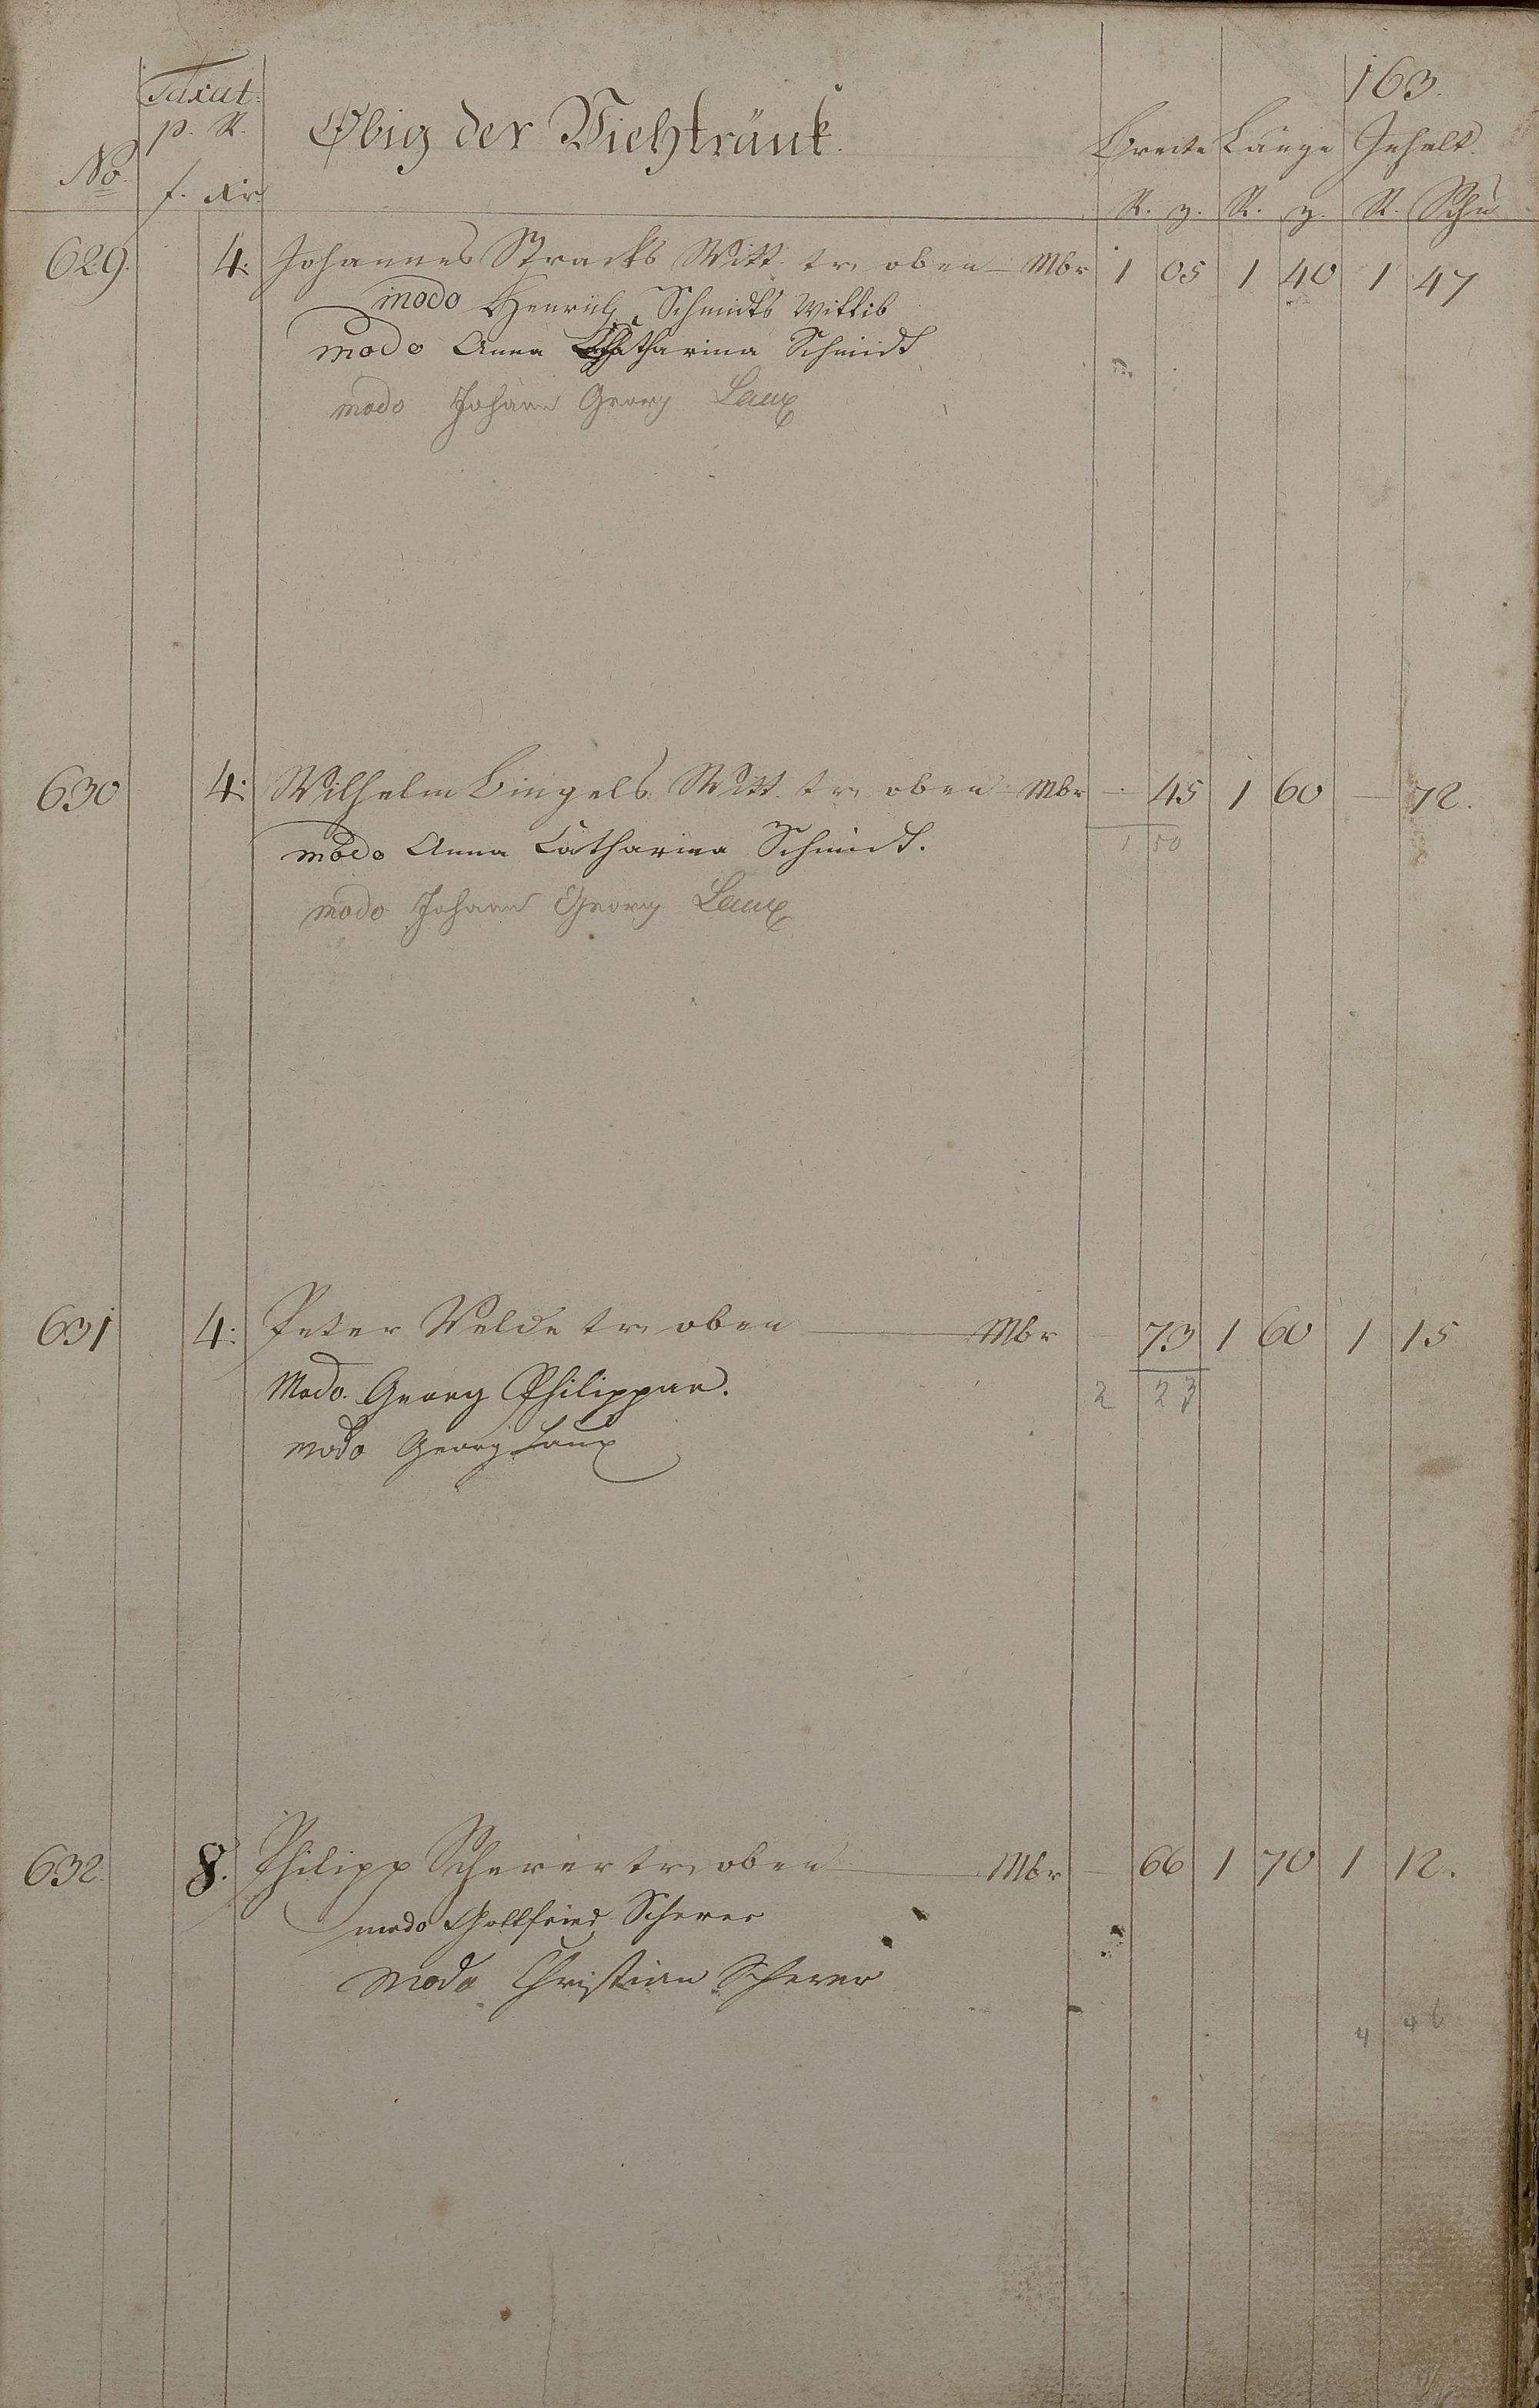 163.
Taxat:
p. R.
Obig der Viehtränk.
Breite Länge Inhalt
No. f. Xr. R. z. R. z. R. Schu
629. 4. Johannes Stracks Witt. tr. oben Mbr 1 05 1 40 1 47
modo Henrich Schmidts Wittib
modo Anna Catharina Schmidt
modo Johann Georg Laux
630 4. Wilhelm Bingels Witt. tr. oben Mbr - 45 1 60 - 72.
1 50
modo Anna Catharina Schmidt.
modo Johann Georg Laux
631 4: Peter Velde tr. oben Mbr 73 1 60 1 15
Modo. Georg Philippar. 2 23
modo Georg Laux
632. 8. Philipp Scherer tr. oben Mbr - 66 1 70 1 12.
modo Gottfried Scherer
Modo Christian Scherer
4 46